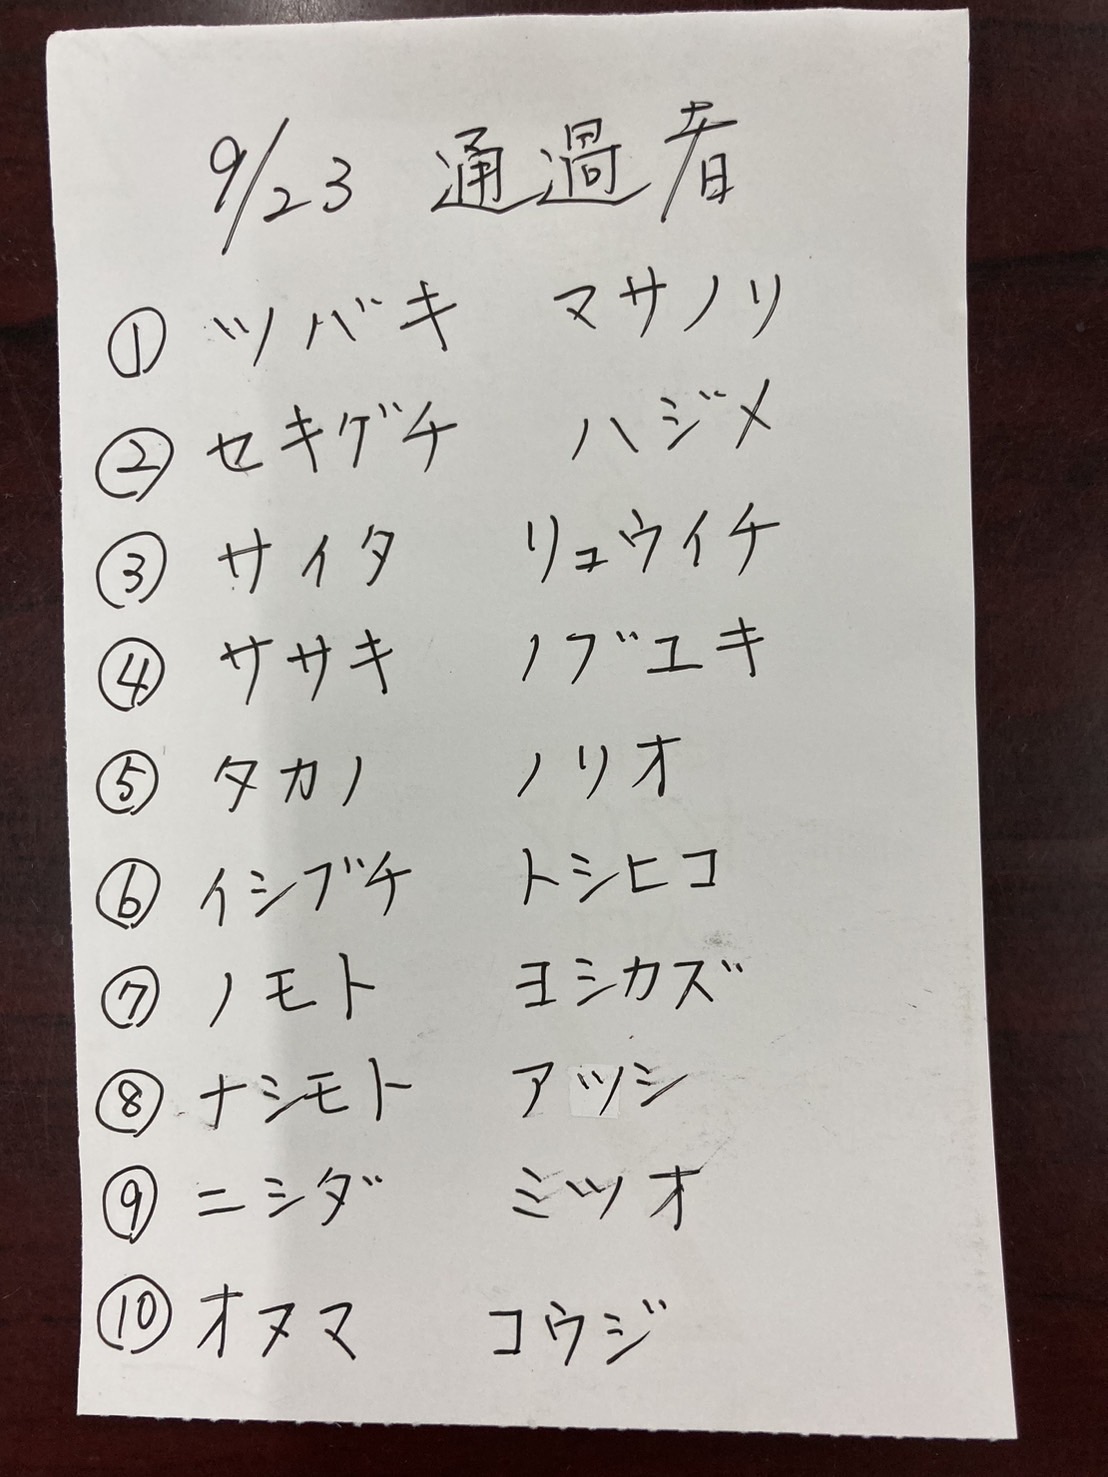 9/23 通過者
① ツバキ マサノリ
② セキグチ ハジメ
③ サイタ リュウイチ
④ ササキ ノブユキ
⑤ タカノ ノリオ
⑥ イシブチ トシヒコ
⑦ ノモト ヨシカズ
⑧ ナシモト アツシ
⑨ ニシダ ミツオ
⑩ オヌマ コウジ